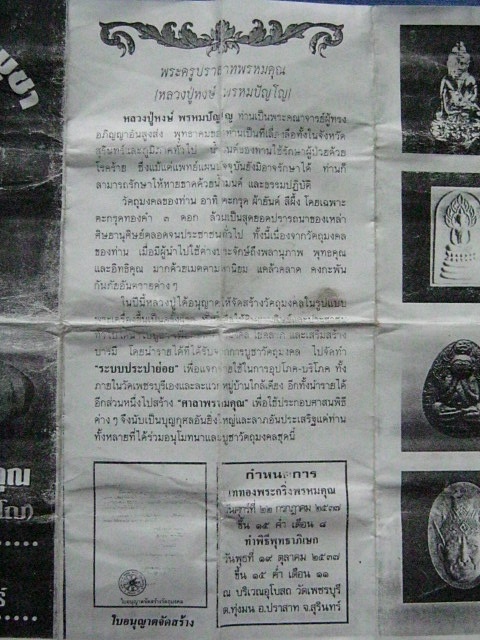 พระครูปราสาทพรหมคุณ
(หลวงปู่หงษ์ พรหมปัญโญ)
หลวงปู่หงษ์ พรหมปัญโญ ท่านเป็นพระคณาจารย์ผู้ทรง
อภิญญาอันสูงส่ง พุทธาคมของท่านเป็นที่เลื่องลือทั้งในจังหวัด
สุรินทร์และภูมิภาคทั่วไป ท่านใช้รักษาผู้ป่วยด้วย
โรคร้าย ซึ่งแม้แต่แพทย์แผนปัจจุบันยังมิอาจรักษาได้ ท่านก็
สามารถรักษาให้หายขาดด้วยน้ำมนต์ และธรรมปฏิบัติ
วัตถุมงคลของท่าน อาทิ ตะกรุด ผ้ายันต์ สีผึ้ง โดยเฉพาะ
ตะกรุดทองคำ ๓ ดอก ล้วนเป็นสุดยอดปรารถนาของเหล่า
ศิษยานุศิษย์ตลอดจนประชาชนทั่วไป ทั้งนี้เนื่องจากวัตถุมงคล
ของท่าน เมื่อมีผู้นำไปใช้ต่างประจักษ์ถึงพลานุภาพ พุทธคุณ
และอิทธิคุณ มากด้วยเมตตามหานิยม แคล้วคลาด คงกะพัน
กันภัยอันตรายต่างๆ
ในปีนี้หลวงปู่ได้อนุญาตให้จัดสร้างวัตถุมงคลในรูปแบบ
และเสริมสร้าง
บารมี โดยนำรายได้ที่ได้รับจากการบูชาวัตถุมงคล ไปจัดทำ
"ระบบประปาย่อย" เพื่อแจกจ่ายใช้ในการอุปโภค-บริโภค ทั้ง
ภายในวัดเพชรบุรีเองและละแวกหมู่บ้านใกล้เคียง อีกทั้งนำรายได้
อีกส่วนหนึ่งไปสร้าง "ศาลาพรหมคุณ" เพื่อใช้ประกอบศาสนพิธี
ต่างๆ จึงนับเป็นบุญกุศลอันยิ่งใหญ่และลาภอันประเสริฐแด่ท่าน
ทั้งหลายที่ได้ร่วมอนุโมทนาและบูชาวัตถุมงคลชุดนี้
ใบอนุญาตจัดสร้างวัตถุมงคล
ใบอนุญาตจัดสร้าง
กำหนดการ
เททองพระกริ่งพรหมคุณ
๒๒ กรกฎาคม ๒๕๓๗
ขึ้น ๑๕ ค่ำ เดือน ๘
ทำพิธีพุทธาภิเษก
วันพุธที่ ๑๙ ตุลาคม ๒๕๓๗
ขึ้น ๑๕ ค่ำ เดือน ๑๑
ณ บริเวณอุโบสถ วัดเพชรบุรี
ต.ทุ่งมน อ.ปราสาท จ.สุรินทร์